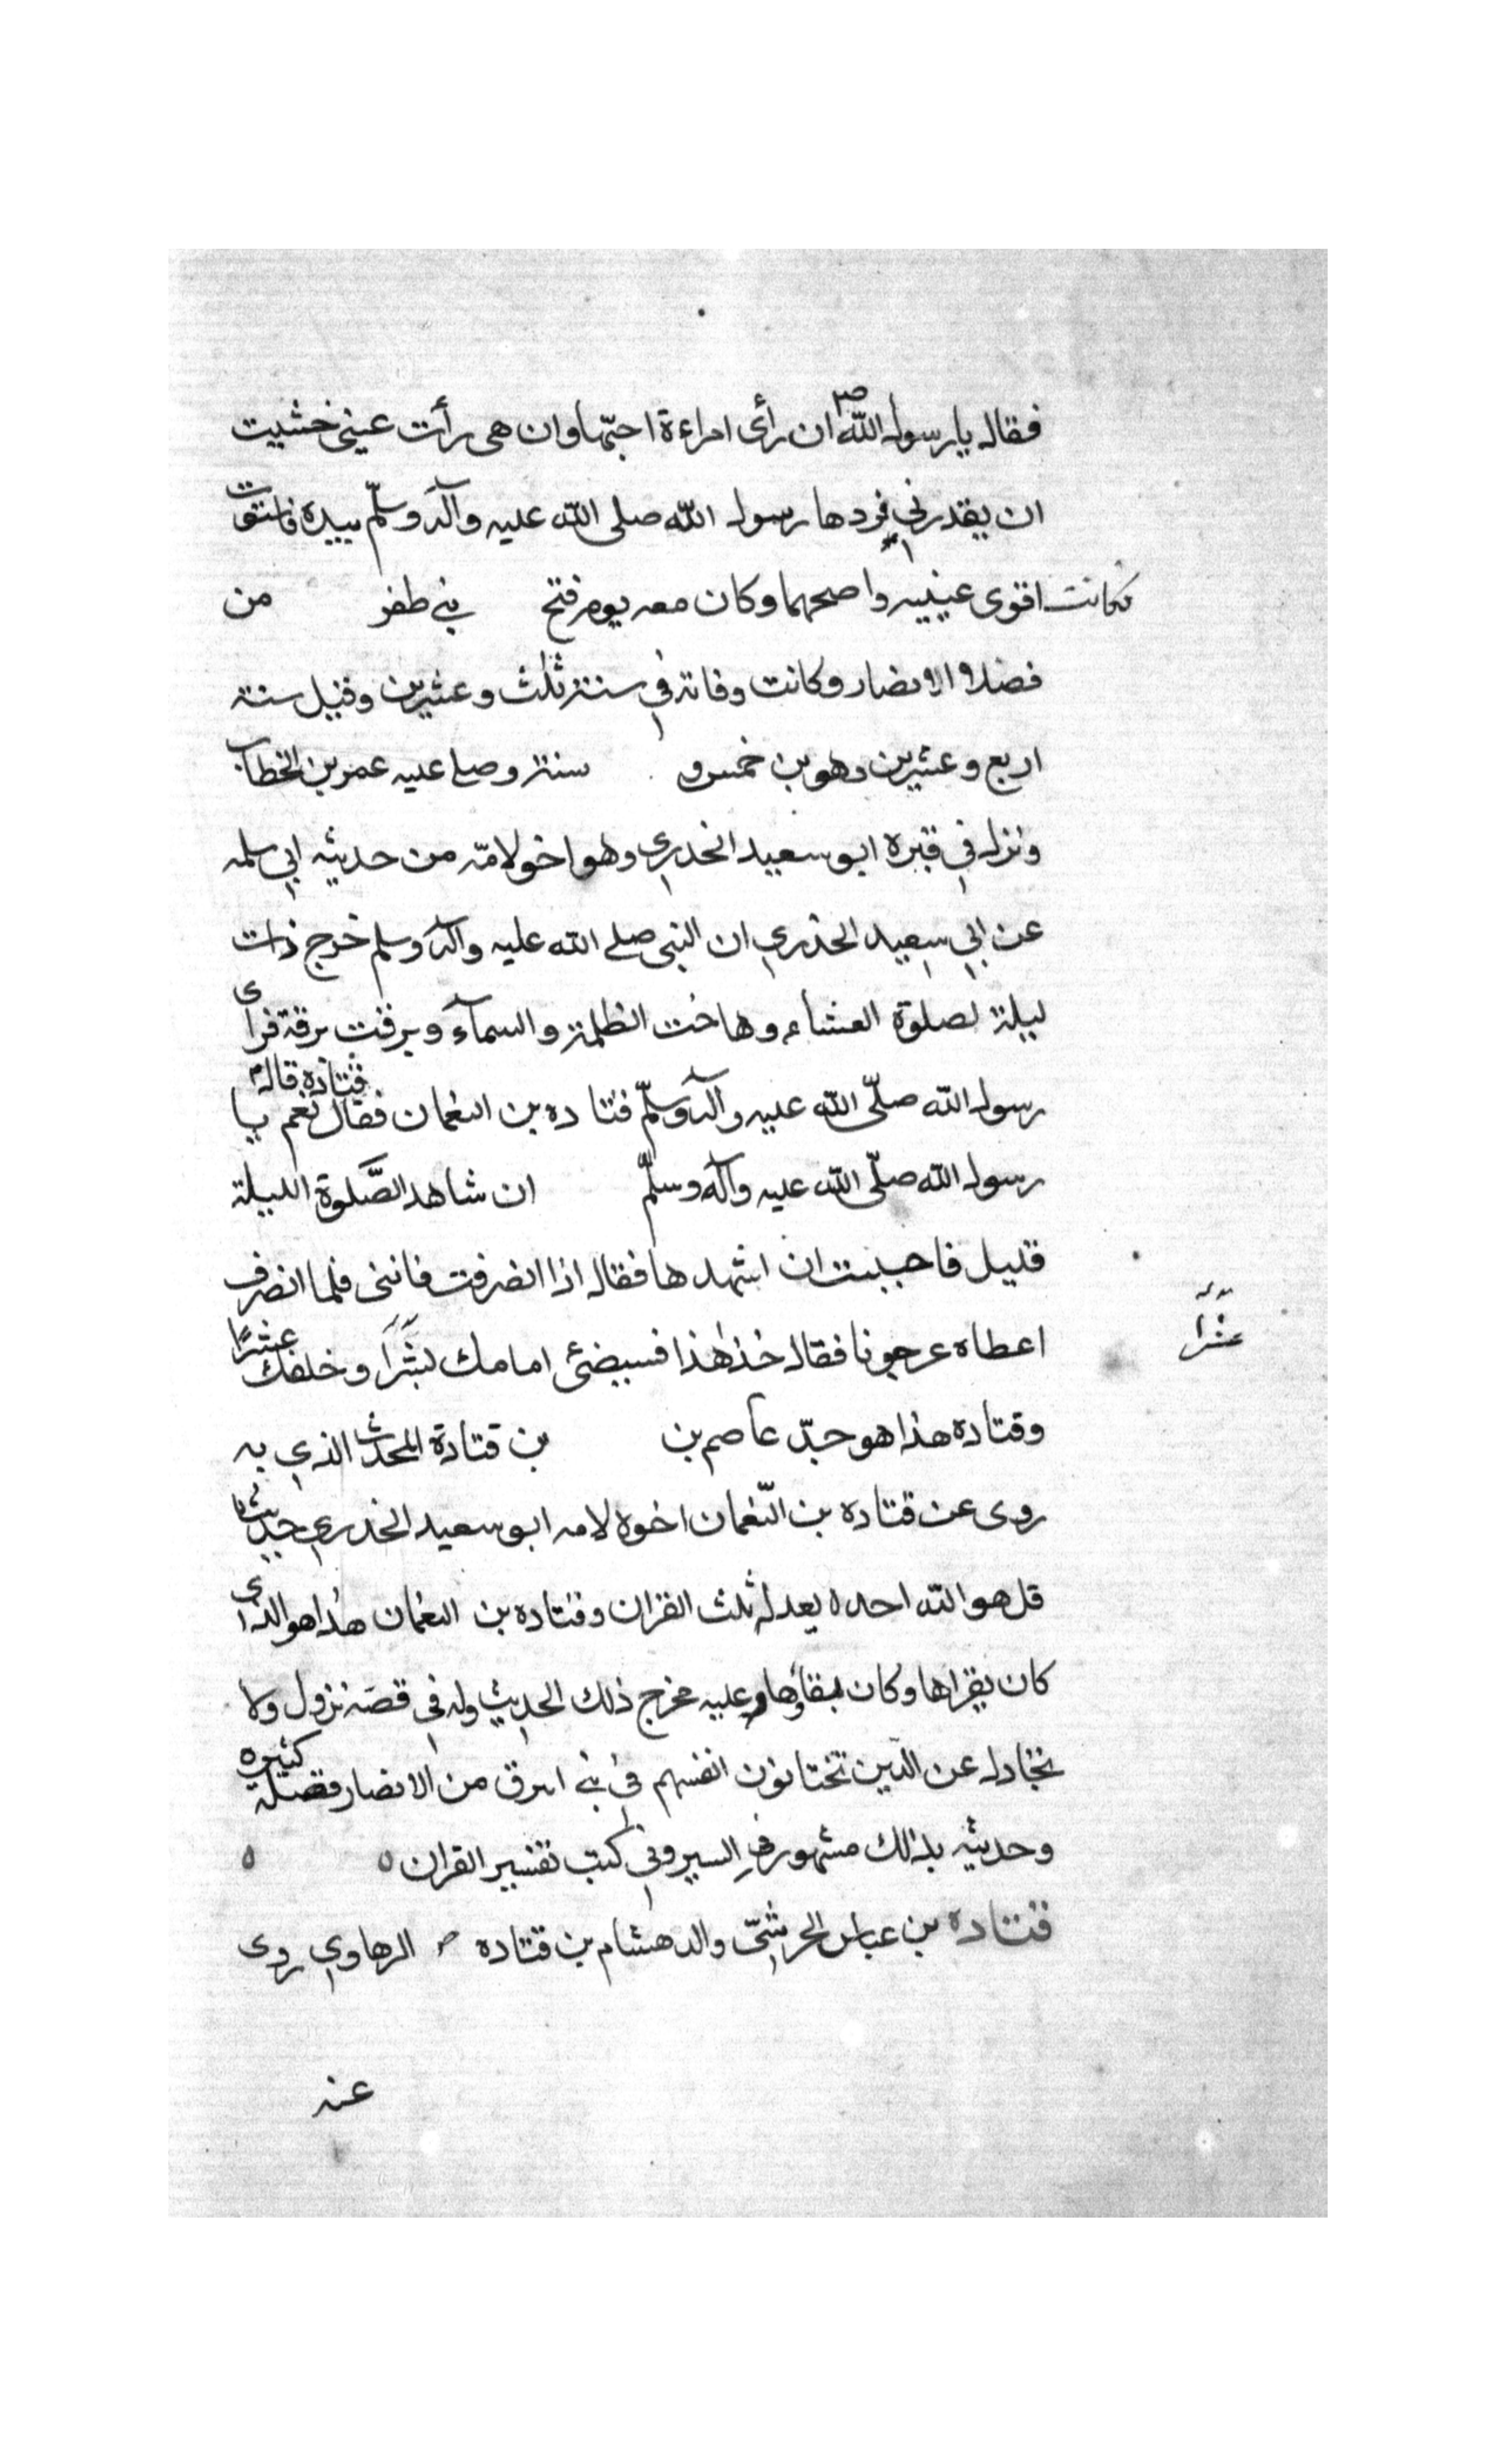 فقال يا رسول الله ص ان رأى امراءة احبّها وان هى رأت عينى خشيت
ان يقدرنى فردها رسول الله صلى الله عليه وآله وسلّم بيده فاستوت
فكانت اقوى عينيه واصحهما وكان معه يوم فتح بنى ظفر من
فضلاء الانصار وكانت وفاته في سنة ثلث وعشرين وقيل سنة
اربع وعشرين وهو بن خمس و سنة وصلى عليه عمر بن الخطاب
ونزل في قبره ابو سعيد الخدري وهو اخو لامّه من حديثه ابي سلمه
عن ابي سعيد الخدري ان النبى صلى الله عليه وآله وسلم خرج ذات
ليلة لصلوة العشاء وهاخت الظلمة والسمآء وبرقت برقة فرأى
رسول الله صلّى الله عليه وآله وسلّم قتاده بن النعمان فقال قتاده قال نعم يا
رسول الله صلّى الله عليه وآله وسلّم ان شاهد الصّلوة الليلة
قليل فاحببت ان اشهدها فقال اذا انصرفت فاننى فلما انصرف
اعطاه عرجونا فقال خذ هذا فسيضئ امامك عشرًا وخلفك عشرًا
عشرًا
وقتاده هذا هو جدّ عاصم بن بن قتادة المحدث الذي به
روى عن قتاده بن النّعمان اخوه لامه ابو سعيد الخدري حديثا
قل هو الله احد ه يعدل ثلث القران وقتاده بن النعمان هذا هو الذى
كان يقراها وكان عليه مخرج ذلك الحديث وله فى قصّة نزول ولا
تجادل عن الذين تختانون انفسهم في بني ابرق من الانصار فضيلة كثيره
وحديثه بذالك مشهور في السير وفي كتب تفسير القران ه ه
قتاده بن عباس الجرشىّ والد هشام بن قتاده الرهاوي روى
عنه